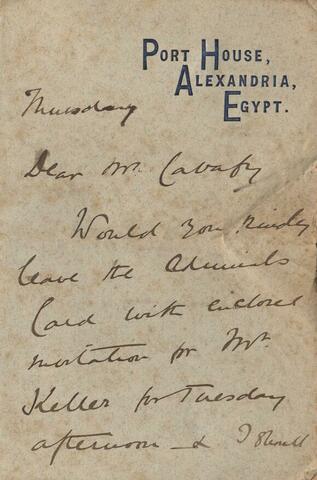 PORT HOUSE,
ALEXANDRIA,
EGYPT.
Thursday
Dear Mr. Cavafy
Would you kindly
leave the Admirals
Card with enclosed
invitation for Mr.
Keller for Tuesday
afternoon - & I shall